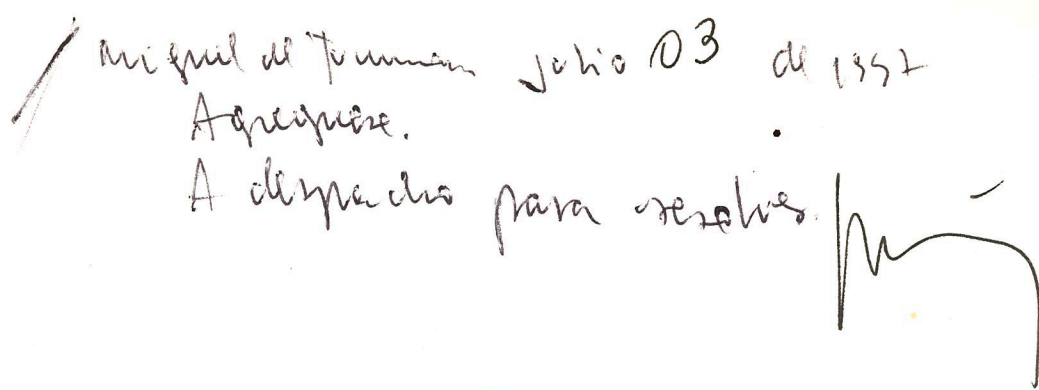 / Miguel de Tucumán Julio 03 de 1997
Agréguese.
A despacho para resolver.